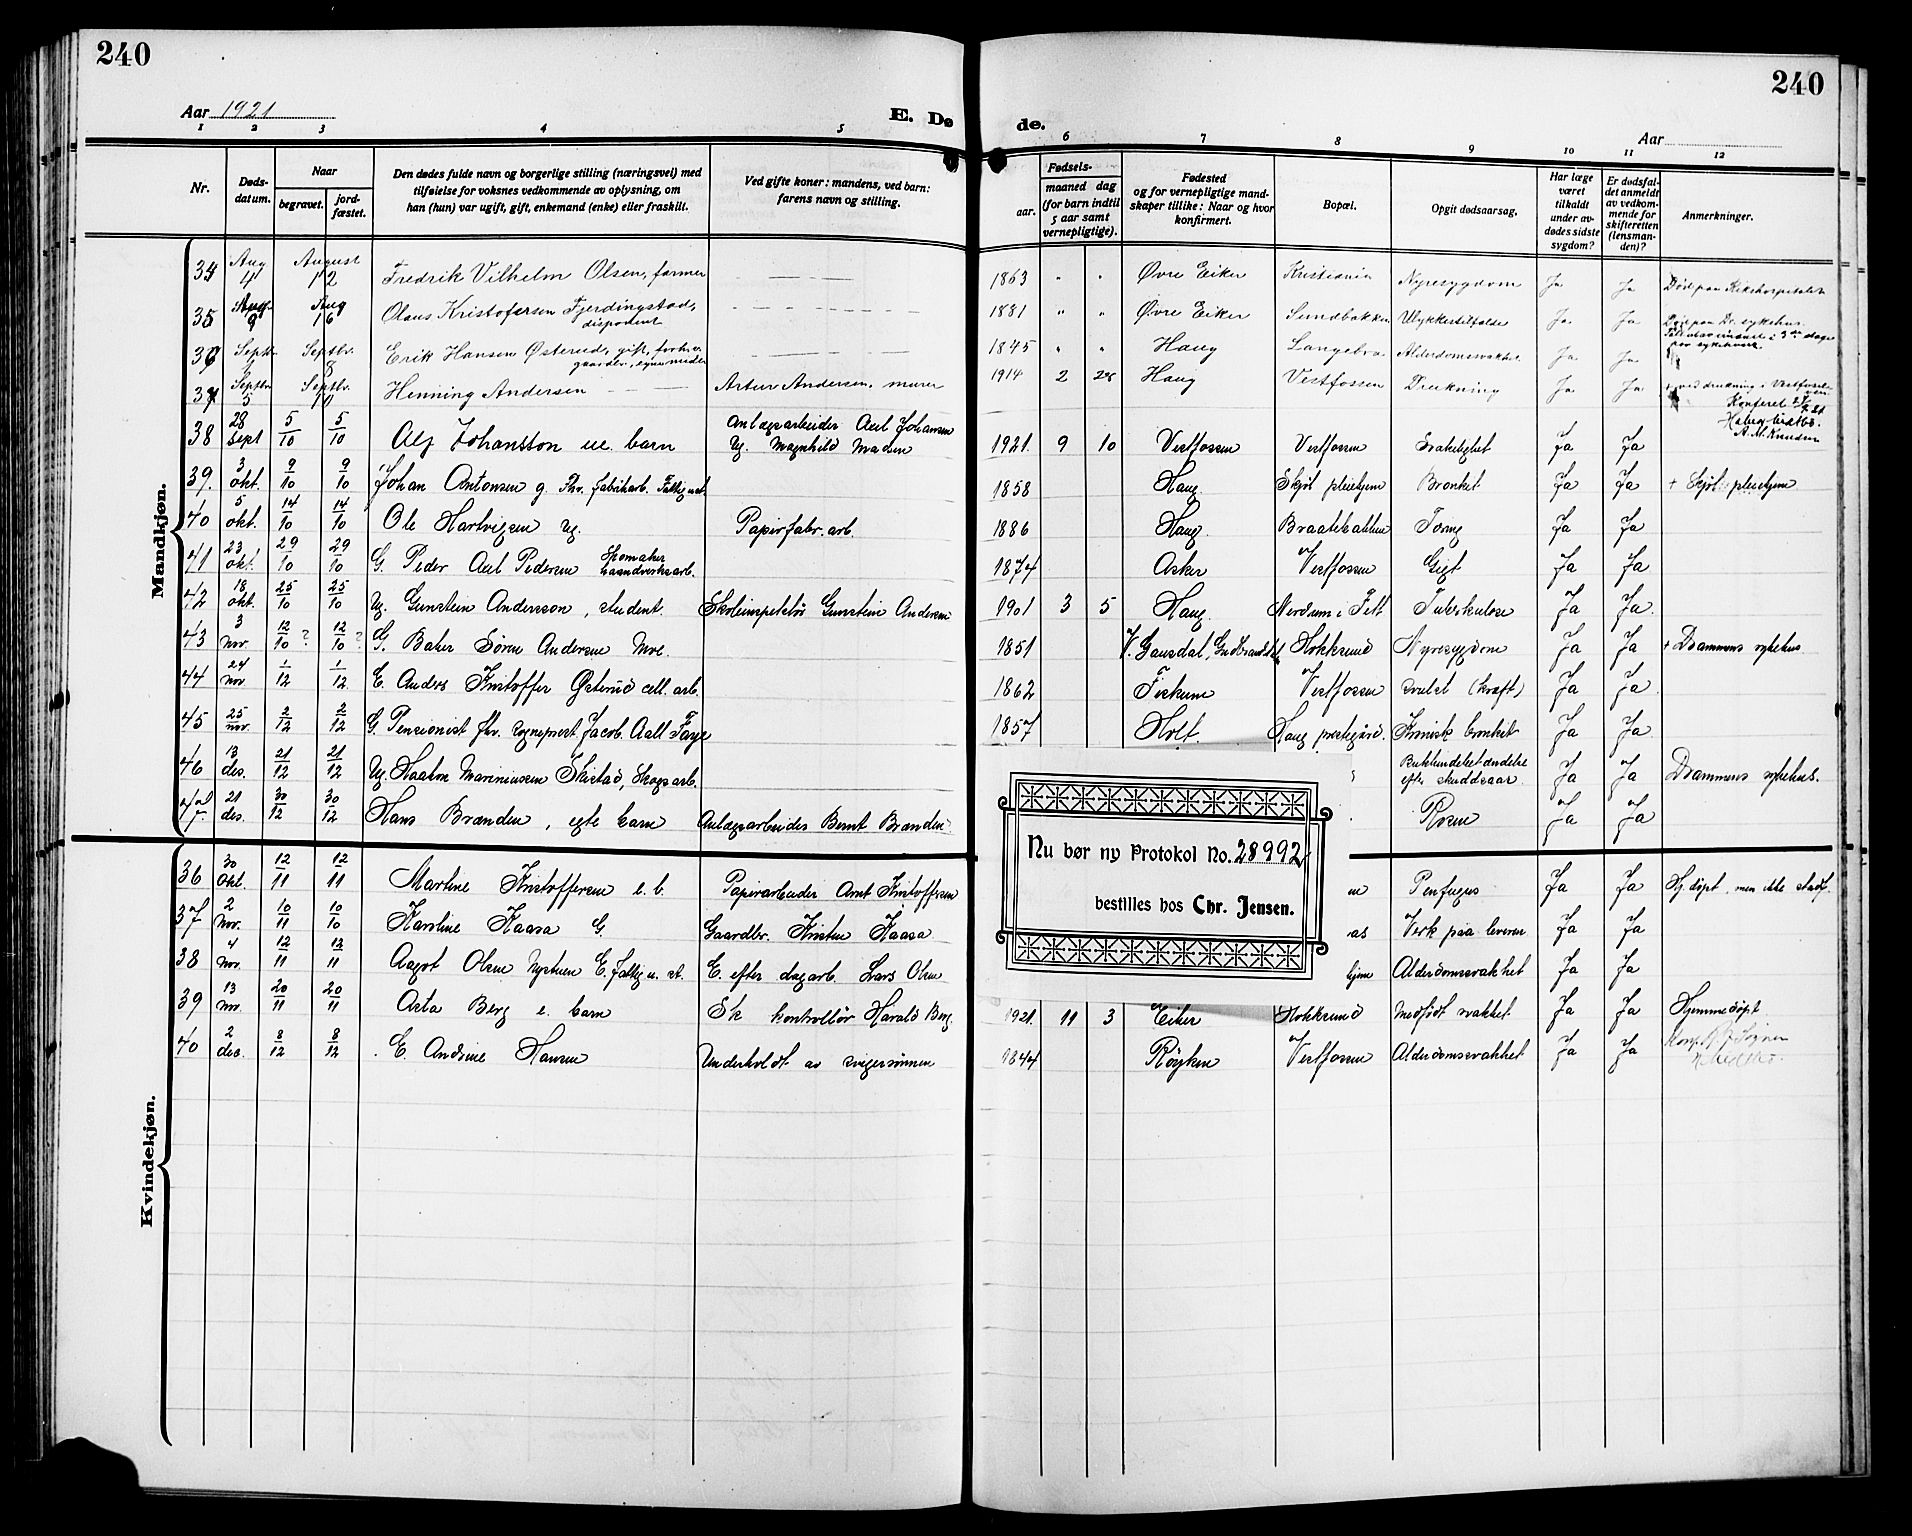 240
240
Aar 1921
E. Dø
de.
Aar
1 2 3 4 5 6 7 8 9 10 11 12
Nr.
Døds-
datum.
Naar
begravet.
jord-
fæstet.
Den dødes fulde navn og borgerlige stilling (næringsvei) med
tilføielse for voksnes vedkommende av oplysning, om
han (hun) var ugift, gift, enkemand (enke) eller fraskilt.
Ved gifte koner: mandens, ved barn:
farens navn og stilling.
Fødsels-
aar.
maaned dag
(for barn indtil
5 aar samt
vernepligtige).
Fødested
og for vernepligtige mand-
skaper tillike: Naar og hvor
konfirmert.
Bopæl.
Opgit dødsaarsag.
Har læge
været
tilkaldt
under av-
dødes sidste
sygdom?
Er dødsfal-
det anmeldt
av vedkom-
mende for
skifteretten
(lensman-
den)?
Anmerkninger.
Mandkjøn.
34 Aug 4 August 12 Fredrik Vilhelm Olsen, farmer 1863 " " Øvre Eiker Kristiania Nyresygdom Ja Ja Død paa Rikshospitalet
35 9 Aug 16 Olaus Kristofersen Fjerdingstad, disponent 1881 " " Øvre Eiker Sundbakken Ulykkestilfælde Ja Ja
36 Septbr 1 Septbr. 8 Erik Hansen Østerud, gift, 1845 " " Haug Langebru Alderdomssvakhet Ja Ja
37 Septbr 5 Septbr. 10 Henning Andersen Artur Andersen, murer 1914 2 28 Haug Vestfossen Drukning Ja Ja + ved drukning i Vestfosselven
Konferet
A. M. Knudsen
38 28 Sept 5/10 5/10 Alf Johansson ue. barn Anlægsarbeider Axel Johansen Ug. Magnhild Madsen 1921 9 10 Vestfossen Vestfossen Svakelighet Ja Ja
39. 3 okt. 9/10 9/10 Johan Antonsen g. Fhv. fabrikarb. Fattigunst. 1858 Haug Skjøl pleiehjem Bronkit Ja Ja + Skjøl pleiehjem
40 5 okt. 14/10 14/10 Ole Hartvigsen ug. Papirfabr. arb. 1886 Haug Braatekakken Tæring Ja Ja
41 23 okt. 29/10 29/10 G. Peder Axel Pedersen Skomaker haandverksarb. 1874 Asker Vestfossen Gigt Ja Ja
42 18 okt. 25/10 25/10 Ug. Gunstein Andersson, student. Skoleinspektør Gunstein Andersen 1901 3 5 Haug Nerdrum i Fett Tuberkulose Ja Ja.
43 3 nov. 12/10 ? 12/10 ? G. Baker Søren Andersen Moe. 1851 V. Gausdal, Gudbrandsdal Hokksund Nyresygdom Ja Ja + Drammens sykehus
44 24 nov. 1/12 1/12 E. Anders Kristoffer Østerud cell. arb. 1862 Fiskum Vestfossen Svulst (kræft) Ja Ja.
45 25 nov. 2/12 2/12 G. Pensionist fhv. sogneprest Jacob Aall Faye 1857 Holt. Haug prestegård. Kronisk bronkit Ja Ja
46 13 des. 21/12 21/12 Ug. Haakon Mariniussen Skistad, Skogsarb. Bukhindebetændelse efter skuddsaar. Ja Ja Drammens sykehus.
47. 21 des. 30/12 30/12 Hans Brænden, egte barn Anlægsarbeider Bernt Brænden Rosen Ja Ja
Nu bør ny Protokol No. 28992
bestilles hos Chr. Jensen.
Kvindekjøn.
36 30 Okt. 12/11 12/11 Martine Kristoffersen e. b. Papirarbeider Arnt Kristoffersen Penfugus Ja Ja Hj. døpt, men ikke stadf.
37 2 Nov. 10/11 10/10 Karoline Kaasa G. Gaardbr. Kristen Kaasa Verk paa leveren Ja Ja
38 4 nov. 12/11 12/11 Aagot Olsen Nystuen E. fattig u. st. E. efter dagarb. Lars Olsen hjem Alderdomssvakhet Ja Ja
39 13 nov. 20/11 20/11 Asta Berg e. barn Sk kontrollør Harald Berg. 1921. 11 3 Eiker Hokksund Medfødt svakhet Ja Ja Hjemmedøpt.
40 2 dec. 8/12 8/12 E. Andrine Hansen Underholdt av svigersønnen 1844 Røyken Vestfossen Alderdomssvakhet Ja Ja